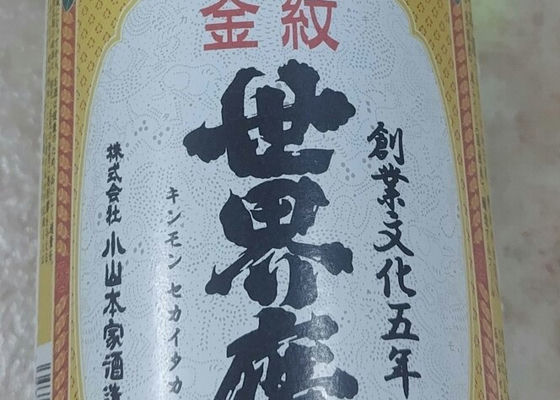 金紋
創業文化五年
世界鷹
キンモン セカイタカ
株式会社 小山本家酒造